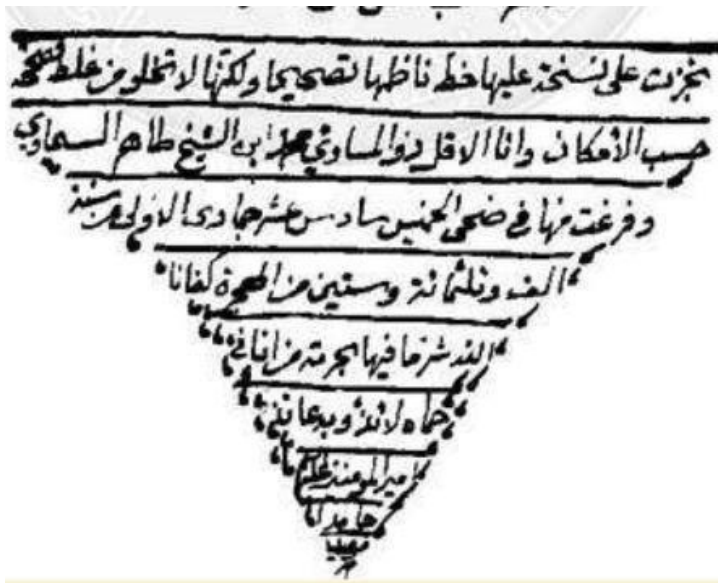 نجزت على نسخة عليها خط ناظمها تصحيحا ولكنها لا تخلو من غلط
حسب الأمكان وانا الاقل ذو المساوي محمد ابن الشيخ طاهر السماوي
وفرغت منها في ضحى الخميس سادس عشر جمادى الاولى من سنة
الف وثلثمائة وستين من الهجرة كفانا
الله شر ما فيها بحرمة من انا في
حماه لائذ و
امير المؤمنين
حامدا
مصليا
م